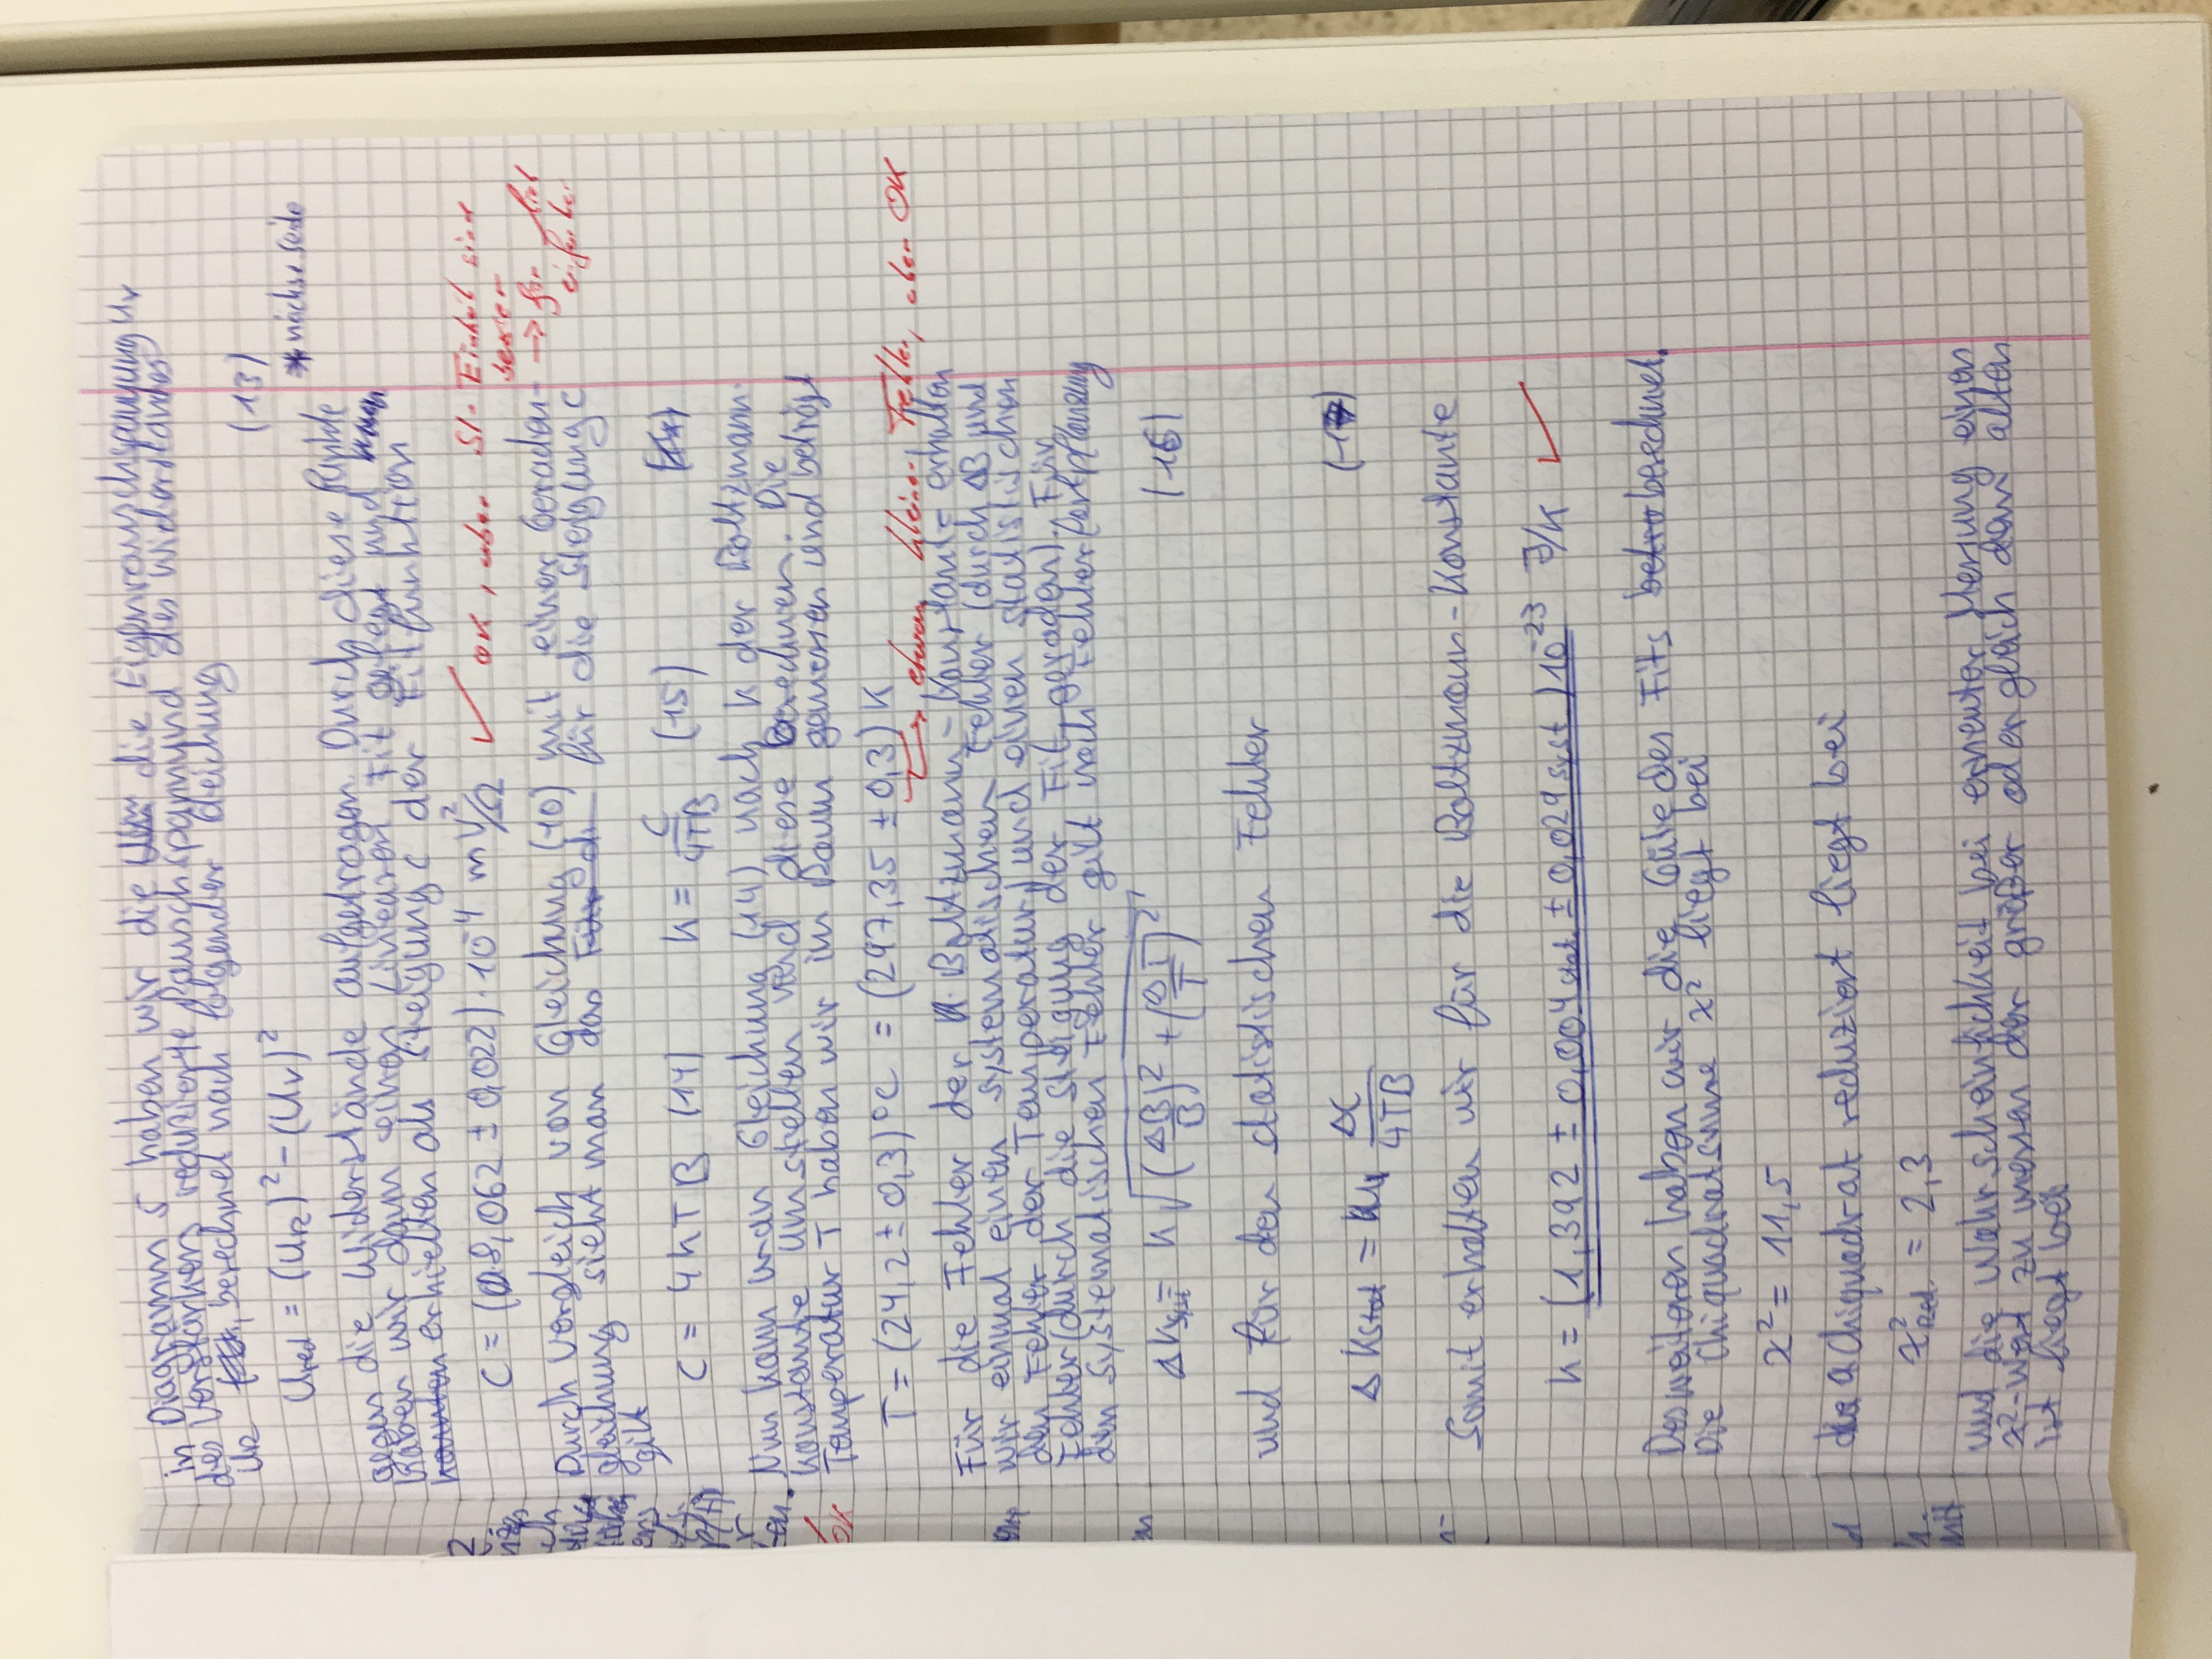 in Diagramm 5 haben wir die die Eigenrauschspannung Uv
des Verstärkers reduzierte Rauschspannund des Widerstandes
UR , berechnet nach folgender Gleichung
(13)
Ured = (UR)² - (Uv)²
* nächse Seite
gegen die Widerstände aufgetragen. Durch diese Punkte
haben wir dann einen Linearen Fit gefegt und
konnten erhielten als Steigung c der Fitfunktion
C = (8,062 ± 0,022) · 10⁻⁴ mV²/Ω ✓ OK, aber SI-Einheit sind
besser
Durch Vergleich von Gleichung (10) mit einer Geraden-
gleichung sieht man das Für di für die Steigung c
gilt
C = 4kTB (14) k = C/4TB (15)
Nun kann man Gleichung (14) nach k der Boltzmann-
konstante umstellen und diese berechnen. Die
Temperatur T haben wir im Raum gemessen und beträgt
OK
T = (24,2 ± 0,3)°C = (297,35 ± 0,3) K
→ etwas kleiner Fehler, aber OK
Für die Fehler der Boltzmann-Konstante erhalten
wir einmal einen systematischen Fehler (durch ΔB und
den Fehler der Temperatur) und einen statistischen
Fehler (durch die Steigung der Fit geraden). Für
den systematischen Fehler gilt nach Fehlerfortpflanzung
Δksyst = k √((ΔB/B)² + (ΔT/T)²) (16)
und für den statistischen Fehler
Δkstat = ΔC/4TB (17)
Somit erhalten wir für die Boltzmann-Konstante
k = (1,392 ± 0,004 stat. ± 0,029 syst.) 10⁻²³ J/K ✓
Desweiteren haben wir die Güte des Fits betra berechnet.
Die Chiquadratsume χ² liegt bei
χ² = 11,5
das Chiquadrat reduziert liegt bei
χ²red. = 2,3
und die Wahrscheinlichkeit bei erneuter Messung einen
χ²-Wert zu messen der größer oder gleich dem alten
ist liegt bei